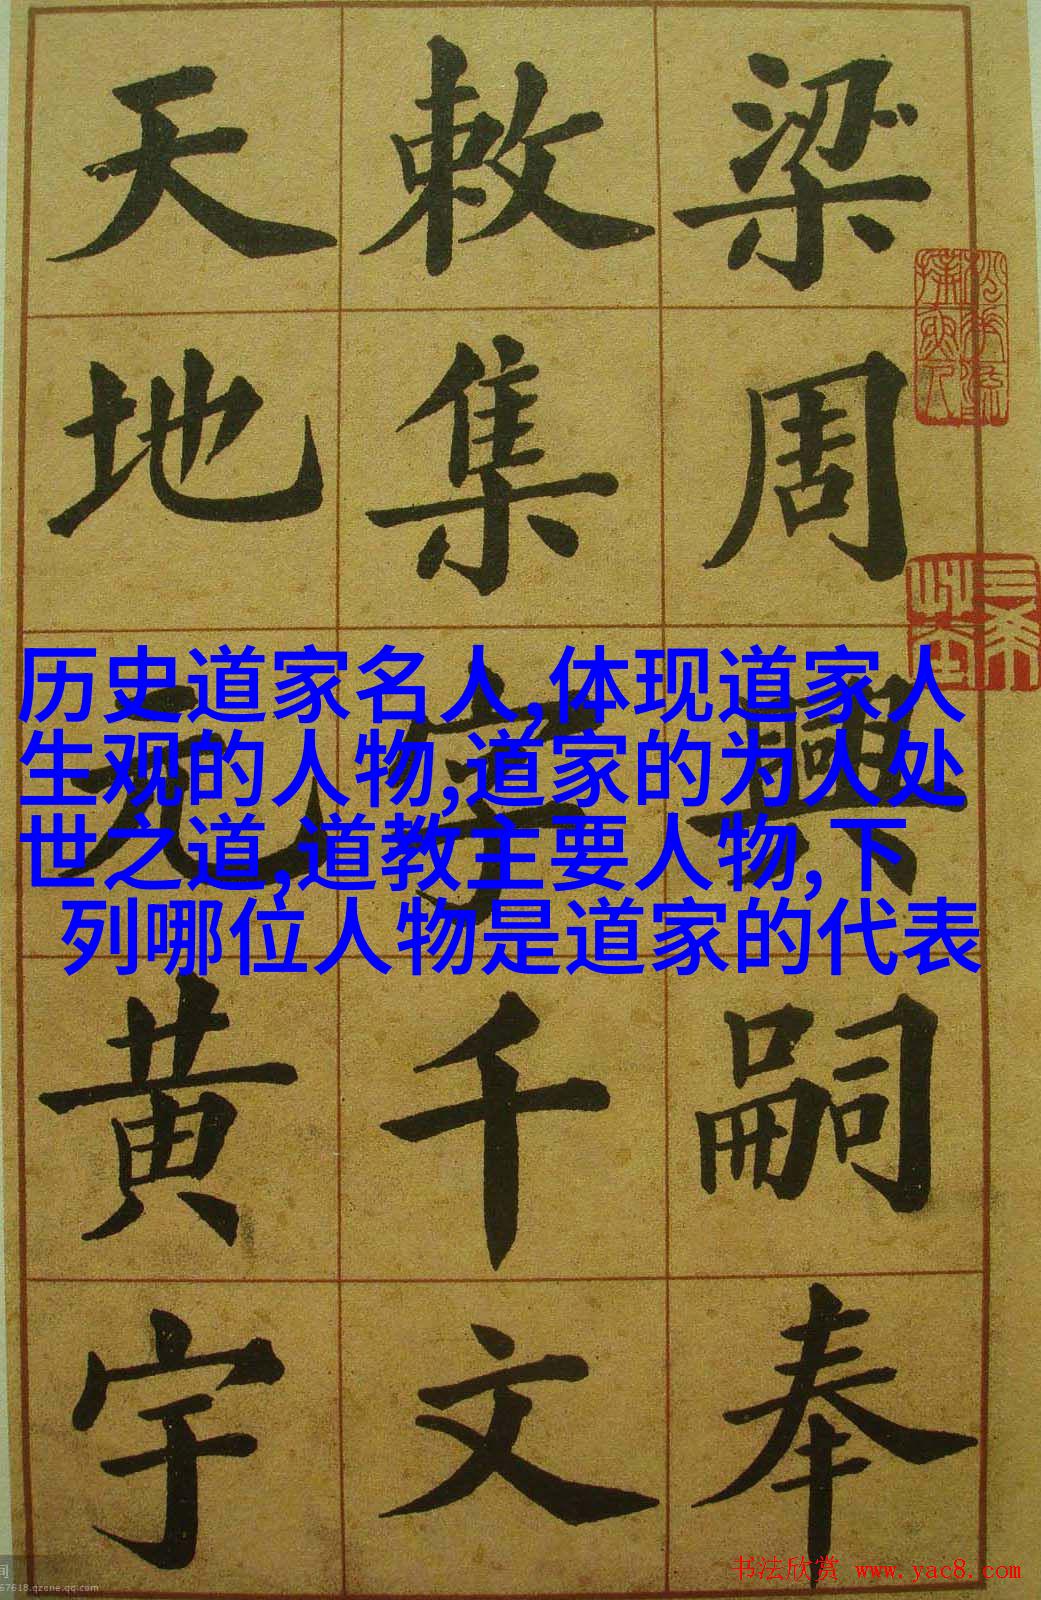 梁周興嗣奉
敕集字千文
天地元黄宇
历史道家名人,体现道家人
生观的人物,道家的为人处
世之道,道教主要人物,下
列哪位人物是道家的代表
书法欣赏 www.yac8.com
67618.qzone.qq.com